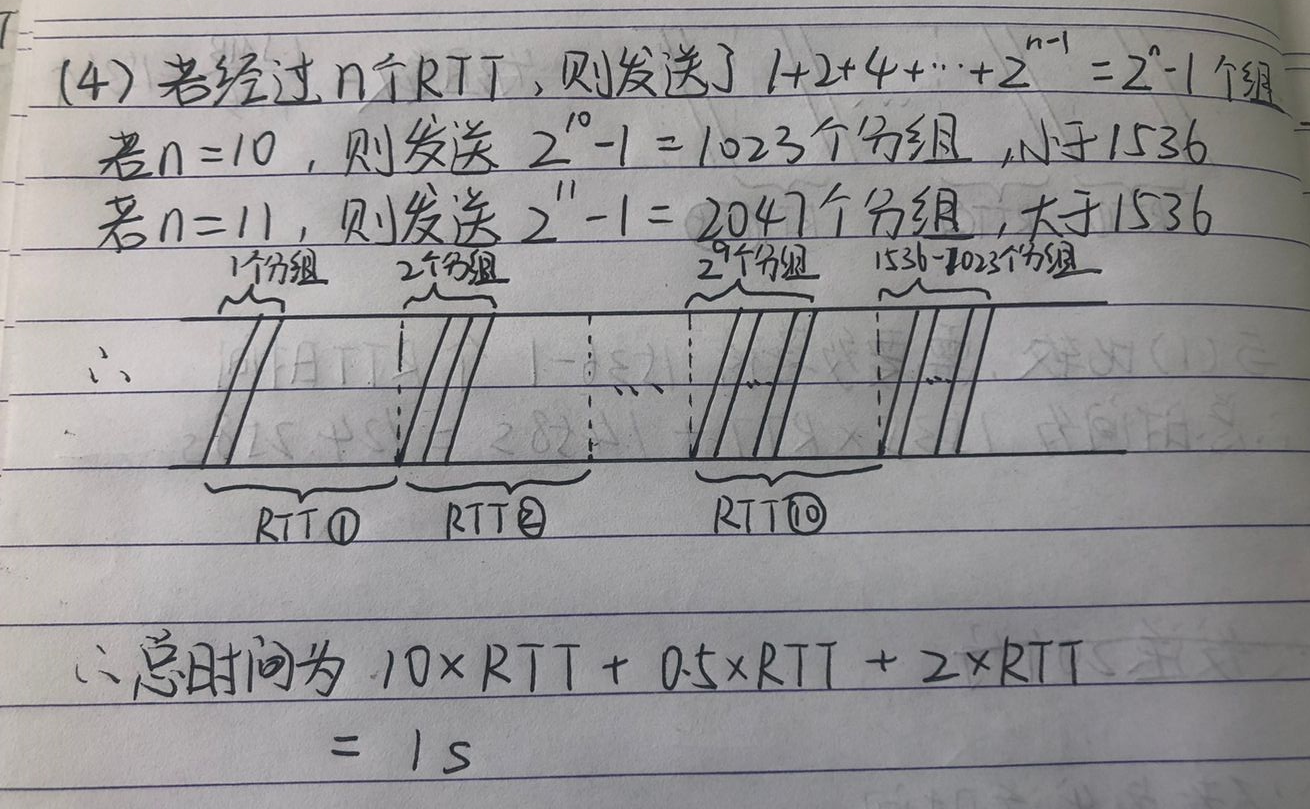 (4) 若经过n个RTT,则发送了 1+2+4+…+2^{n-1} = 2^n-1 个组
若n=10,则发送 2^{10}-1=1023个分组,小于1536
若n=11,则发送 2^{11}-1=2047个分组,大于1536
1个分组 2个分组 2^9个分组 1536-1023个分组
∴ … … …
RTT① RTT② RTT⑩
∴总时间为 10×RTT + 0.5×RTT + 2×RTT
= 1s